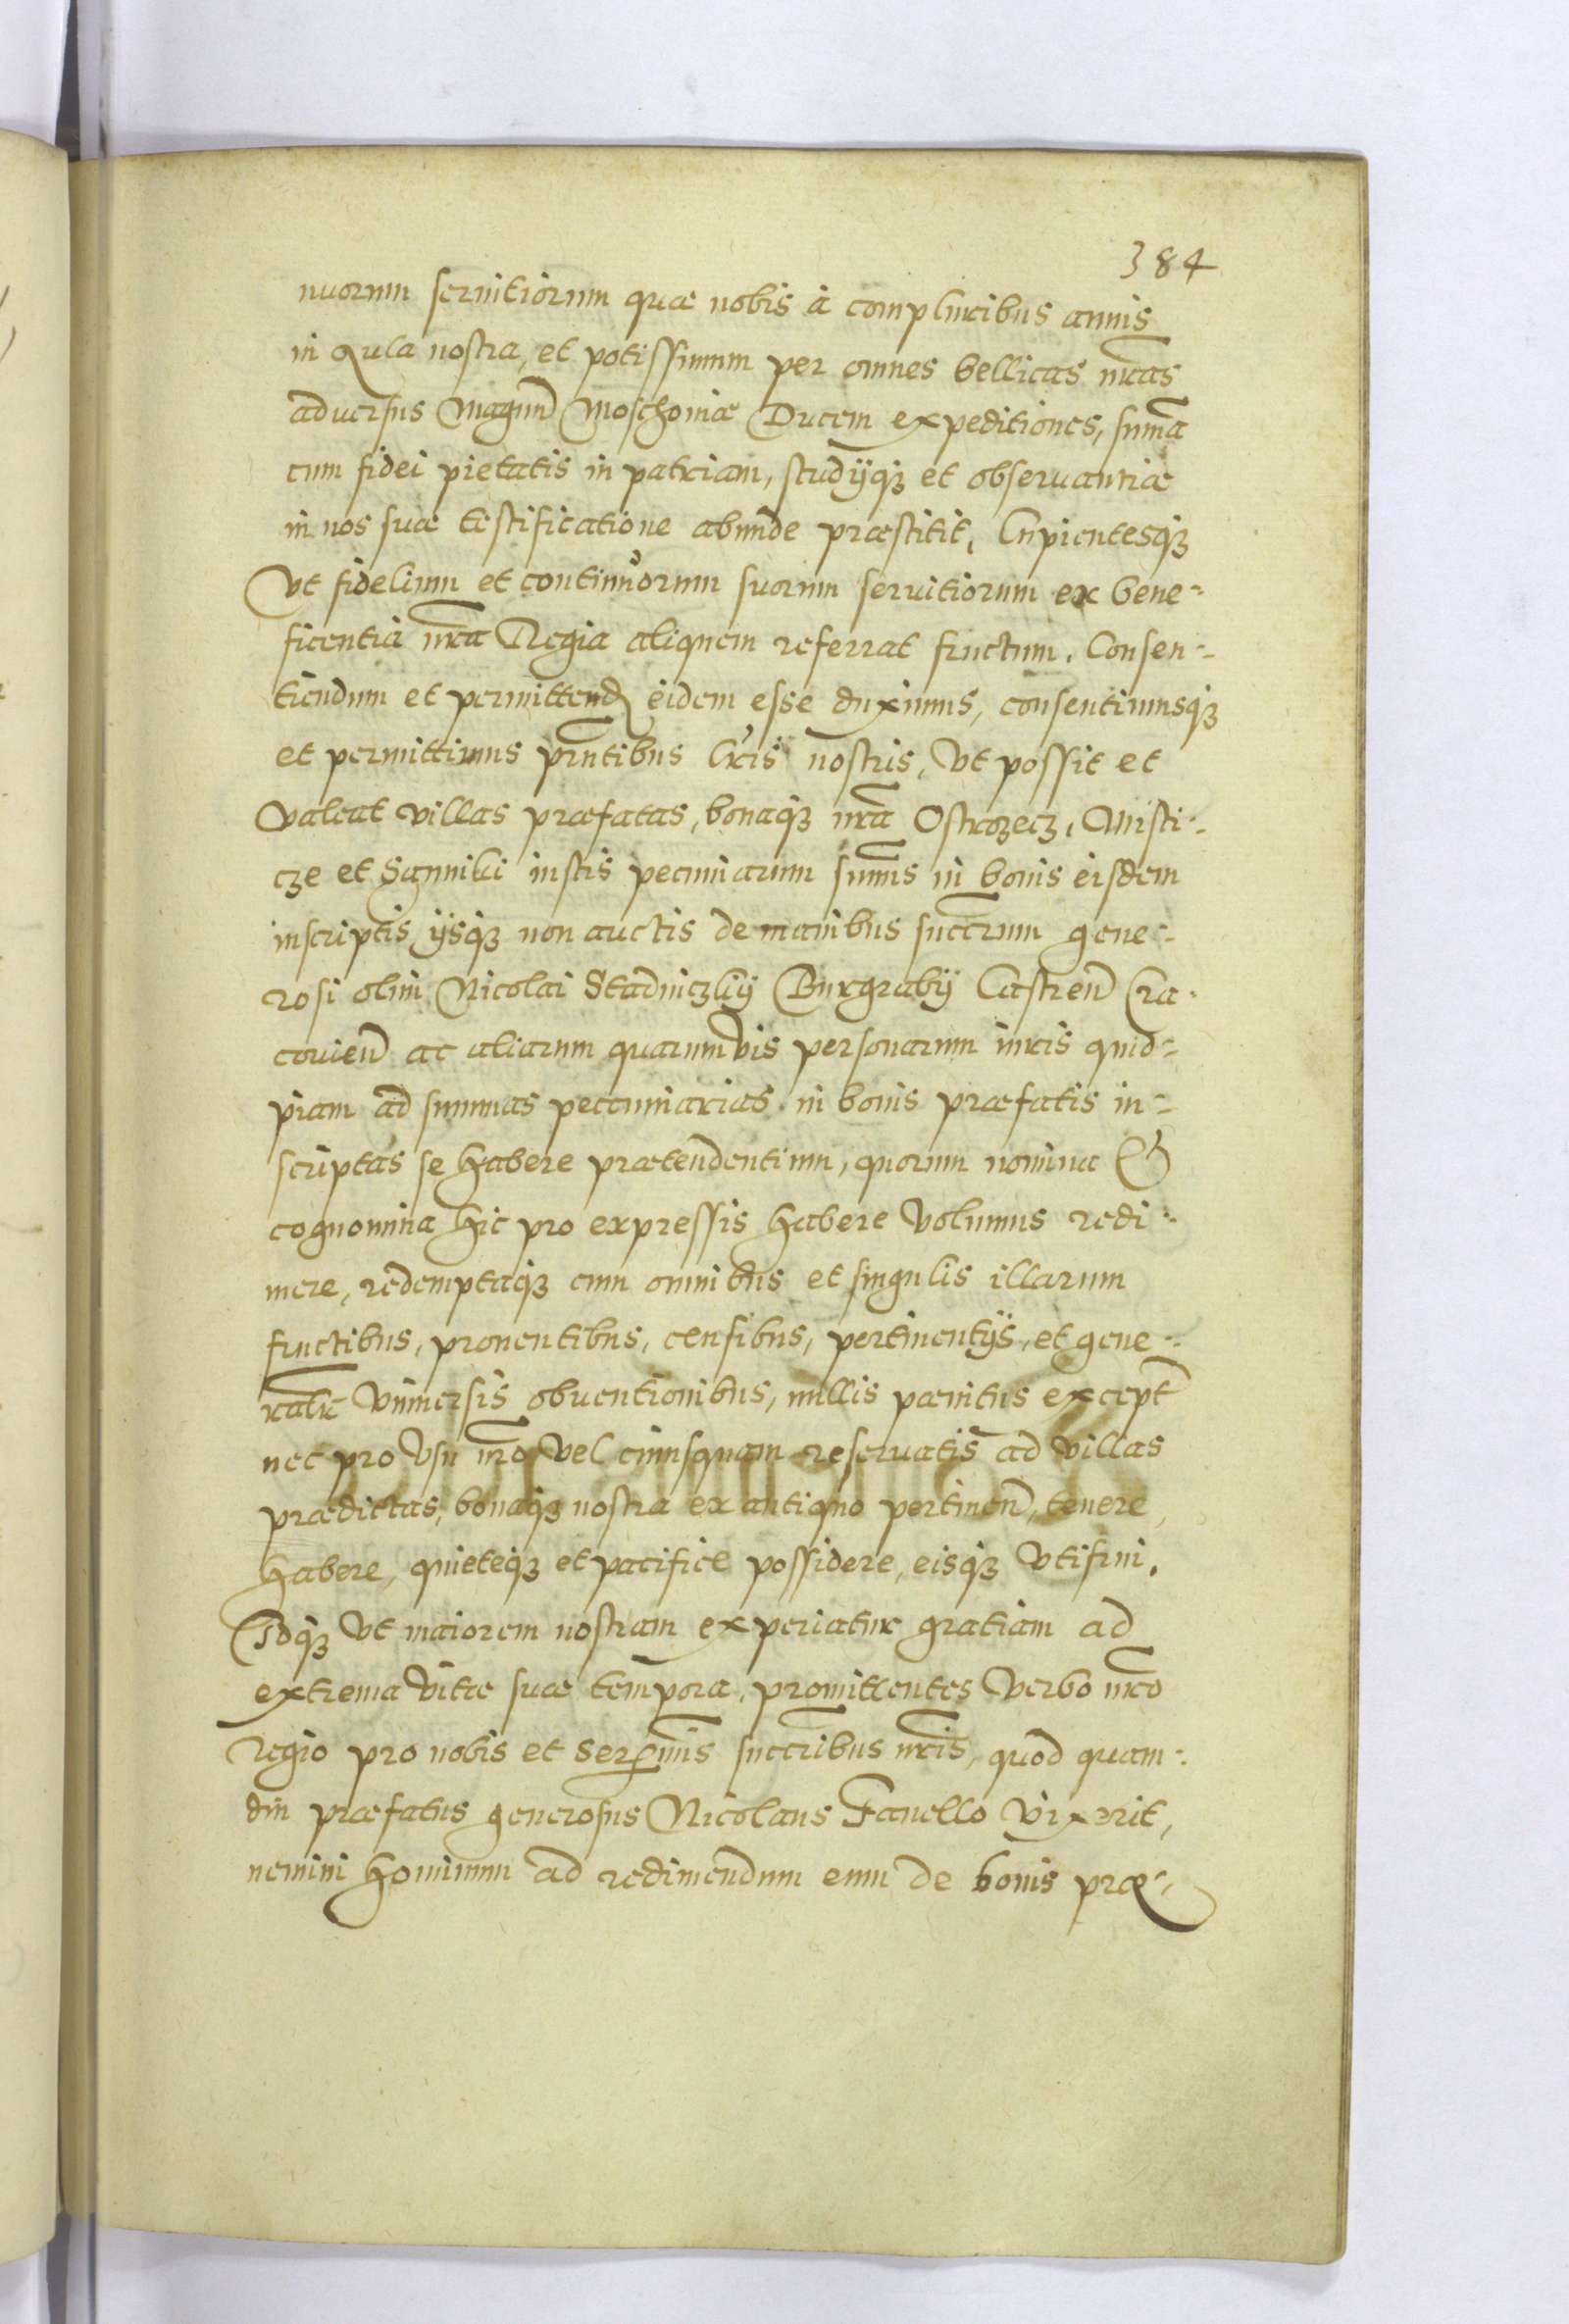 384
nuorum seruitiorum quæ nobis à compluribus annis
in Aula nostra, et potissimum per omnes bellicas nras
aduersus Magnu Moschoviæ Ducem expeditiones, suma
cum fidei pietatis in patriam, studyqȝ et obseruantiæ
in nos suæ testificatione abunde præstitit, Cupientesqȝ
Vt fidelium et continuorum suorum seruitiorum ex bene-
ficentia nra Regia aliquem referrat fructum. Consen-
tiendum et permittend eidem esse duximus, consentimusqȝ
et permittimus pntibus lris nostris, Vt possit et
Valeat villas præfatas, bonaqȝ nra Ostrozecz, Misti-
cze et Sanniki iustis pecuniarum sumis in bonis eisdem
inscriptis, ysqȝ non auctis de manibus succrum gene-
rosi olim Nicolai Stadniczky Burgraby Castren Cra-
couien ac aliarum quarumvis personarum iuris quid-
piam ad summas pecuniarias in bonis præfatis in-
scriptas se habere prætendentium, quorum nomina Et
cognomina hic pro expressis habere Volumus redi-
mere, redemptaqȝ cum omnibus et singulis illarum
fructibus, prouentibus, censibus, pertinentys, et gene-
ralr Vniuersis obuentionibus, nullis pænitus except
nec pro Vsu nro Vel cuiusquam reseruatis ad villas
prædictas, bonaqȝ nostra ex antiquo pertinen, tenere,
habere, quieteqȝ et pacifice possidere, eisqȝ Vtifrui.
Idqȝ Vt maiorem nostram experiatur gratiam ad
extrema Vitæ suæ tempora, promittentes Verbo nro
Regio pro nobis et Serenmis succribus nris, quod quam-
diu præfatus generosus Nicolaus Fanello Vixerit,
nemini hominum ad redimendum eum de bonis præ-